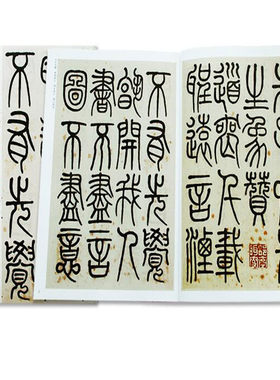 生象贊
道喪千載
聖遠言湮
不有先覺
孰開我人
書不盡言
圖不盡意
不有先覺